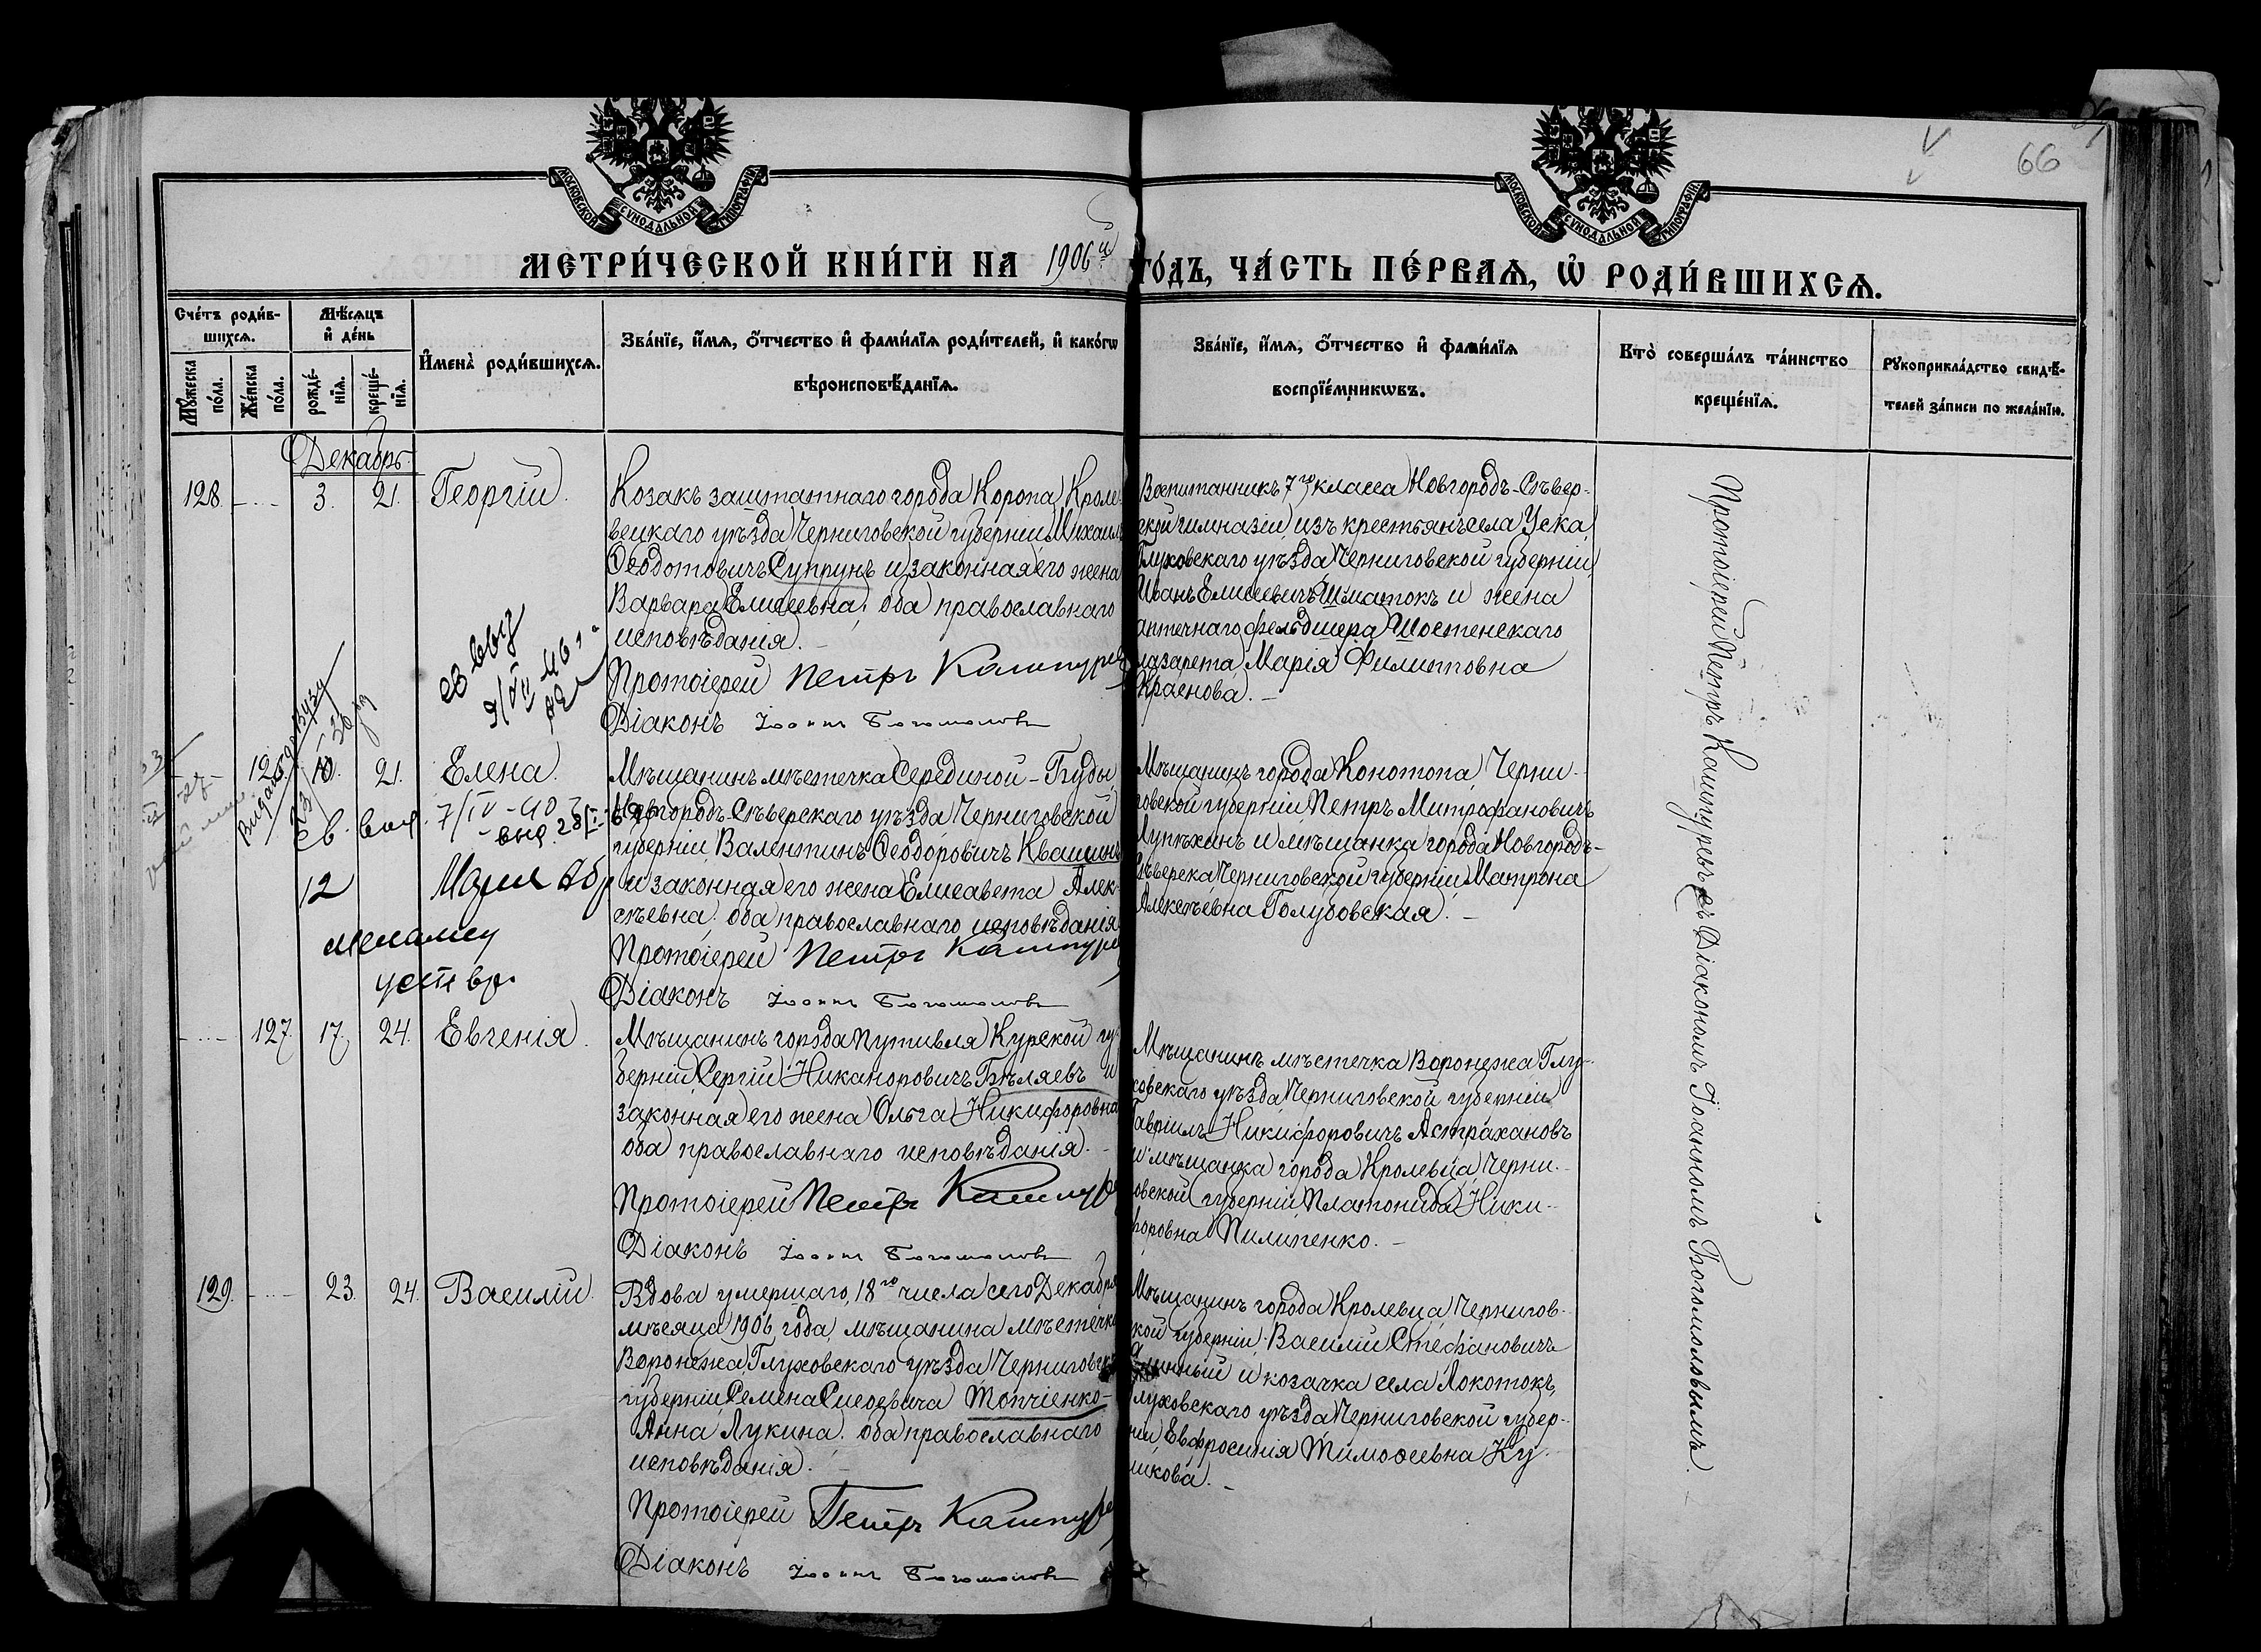 66
МОСКОВСКОЙ СѴНОДАЛЬНОЙ ТИПОГРАФІИ
МОСКОВСКОЙ СѴНОДАЛЬНОЙ ТИПОГРАФІИ
МЕТРИ́ЧЕСКОЙ КНИ́ГИ НА 1906й ГО́ДЪ, ЧА́СТЬ ПЕ́РВАѦ, Ѽ РОДИ́ВШИХСѦ.
Сче́тъ роди́в-
шихсѧ.
Мꙋжеска по́ла.
Же́нска по́ла.
Мѣ́сѧцъ
и҆ де́нь
рожде́-
нїѧ.
креще́-
нїѧ.
И҆мена̀ роди́вшихсѧ.
Зва́нїе, и҆́мѧ, ѻ҆́тчество и҆ фами́лїѧ роди́телей, и҆ како́гѡ
вѣроисповѣ́данїѧ.
Зва́нїе, и҆́мѧ, ѻ҆́тчество и҆ фами́лїѧ
воспрїе́мникѡвъ.
Кто̀ соверша́лъ та́инство
креще́нїѧ.
Рꙋкоприкла́дство свидѣ́-
телей за́писи по жела́нїю.
Декабрь
128. 3. 21. Георгій.
Козакъ заштатнаго города Коропа, Кроле-
вецкаго уѣзда Черниговской губерніи Михаилъ
Ѳеодотовичъ Супрунъ и законная его жена
Варвара Елисеевна, оба православнаго
исповѣданія.
Протоіерей Петръ Кашпуревъ
Діаконъ Іоаннъ Богомоловъ
Воспитанникъ 7го класса Новгородъ-Сѣвер-
ской гимназіи, изъ крестьянъ села Уска,
Глуховскаго уѣзда Черниговской губерніи,
Иванъ Елисеевичъ Шматокъ и жена
аптечнаго фельдшера Шостенскаго
лазарета Марія Филипповна
Краснова.
21. Елена.
7/IV-40
12
Мѣщанинъ мѣстечка Середино-Буды,
Новгородъ-Сѣверскаго уѣзда Черниговской
губерніи Валентинъ Ѳеодоровичъ Квашинъ
и законная его жена Елисавета Алек-
сѣевна, оба православнаго исповѣданія
Протоіерей Петръ Кашпуревъ
Діаконъ Іоаннъ Богомоловъ
Мѣщанинъ города Конотопа, Черни-
говской губерніи Петръ Митрофановичъ
Лупѣхинъ и мѣщанка города Новгородъ-
Сѣверска Черниговской губерніи Матрона
Алексѣевна Голубовская.
127. 17. 24. Евгенія.
Мѣщанинъ города Путивля Курской гу-
берніи Сергій Никаноровичъ Бѣляевъ и
законная его жена Ольга Никифоровна
оба православнаго исповѣданія.
Протоіерей Петръ Кашпуревъ
Діаконъ Іоаннъ Богомоловъ
Мѣщанинъ мѣстечка Воронежа Глу-
ховскаго уѣзда Черниговской губерніи
Гавріилъ Никифоровичъ Астрахановъ
и мѣщанка города Кролевца, Черни-
говской губерніи Платонида Ники-
форовна Пилипенко.
129. 23. 24. Василій.
Вдова умершаго, 18го числа сего Декабря
мѣсяца 1906 года, мѣщанина мѣстечка
Воронежа Глуховскаго уѣзда Черниговской
губерніи Семена Сисоевича Топчіенко-
Анна Лукина, оба православнаго
исповѣданія.
Протоіерей Петръ Кашпуревъ
Діаконъ Іоаннъ Богомоловъ
Мѣщанинъ города Кролевца, Чернигов-
ской губерніи Василій Стефановичъ
и козачка села Локотокъ,
Глуховскаго уѣзда Черниговской губер-
ніи Евфросинія Тимоѳеевна Ку-
ликова.
Протоіерей Петръ Кашпуревъ съ Діакономъ Іоанномъ Богомоловымъ.